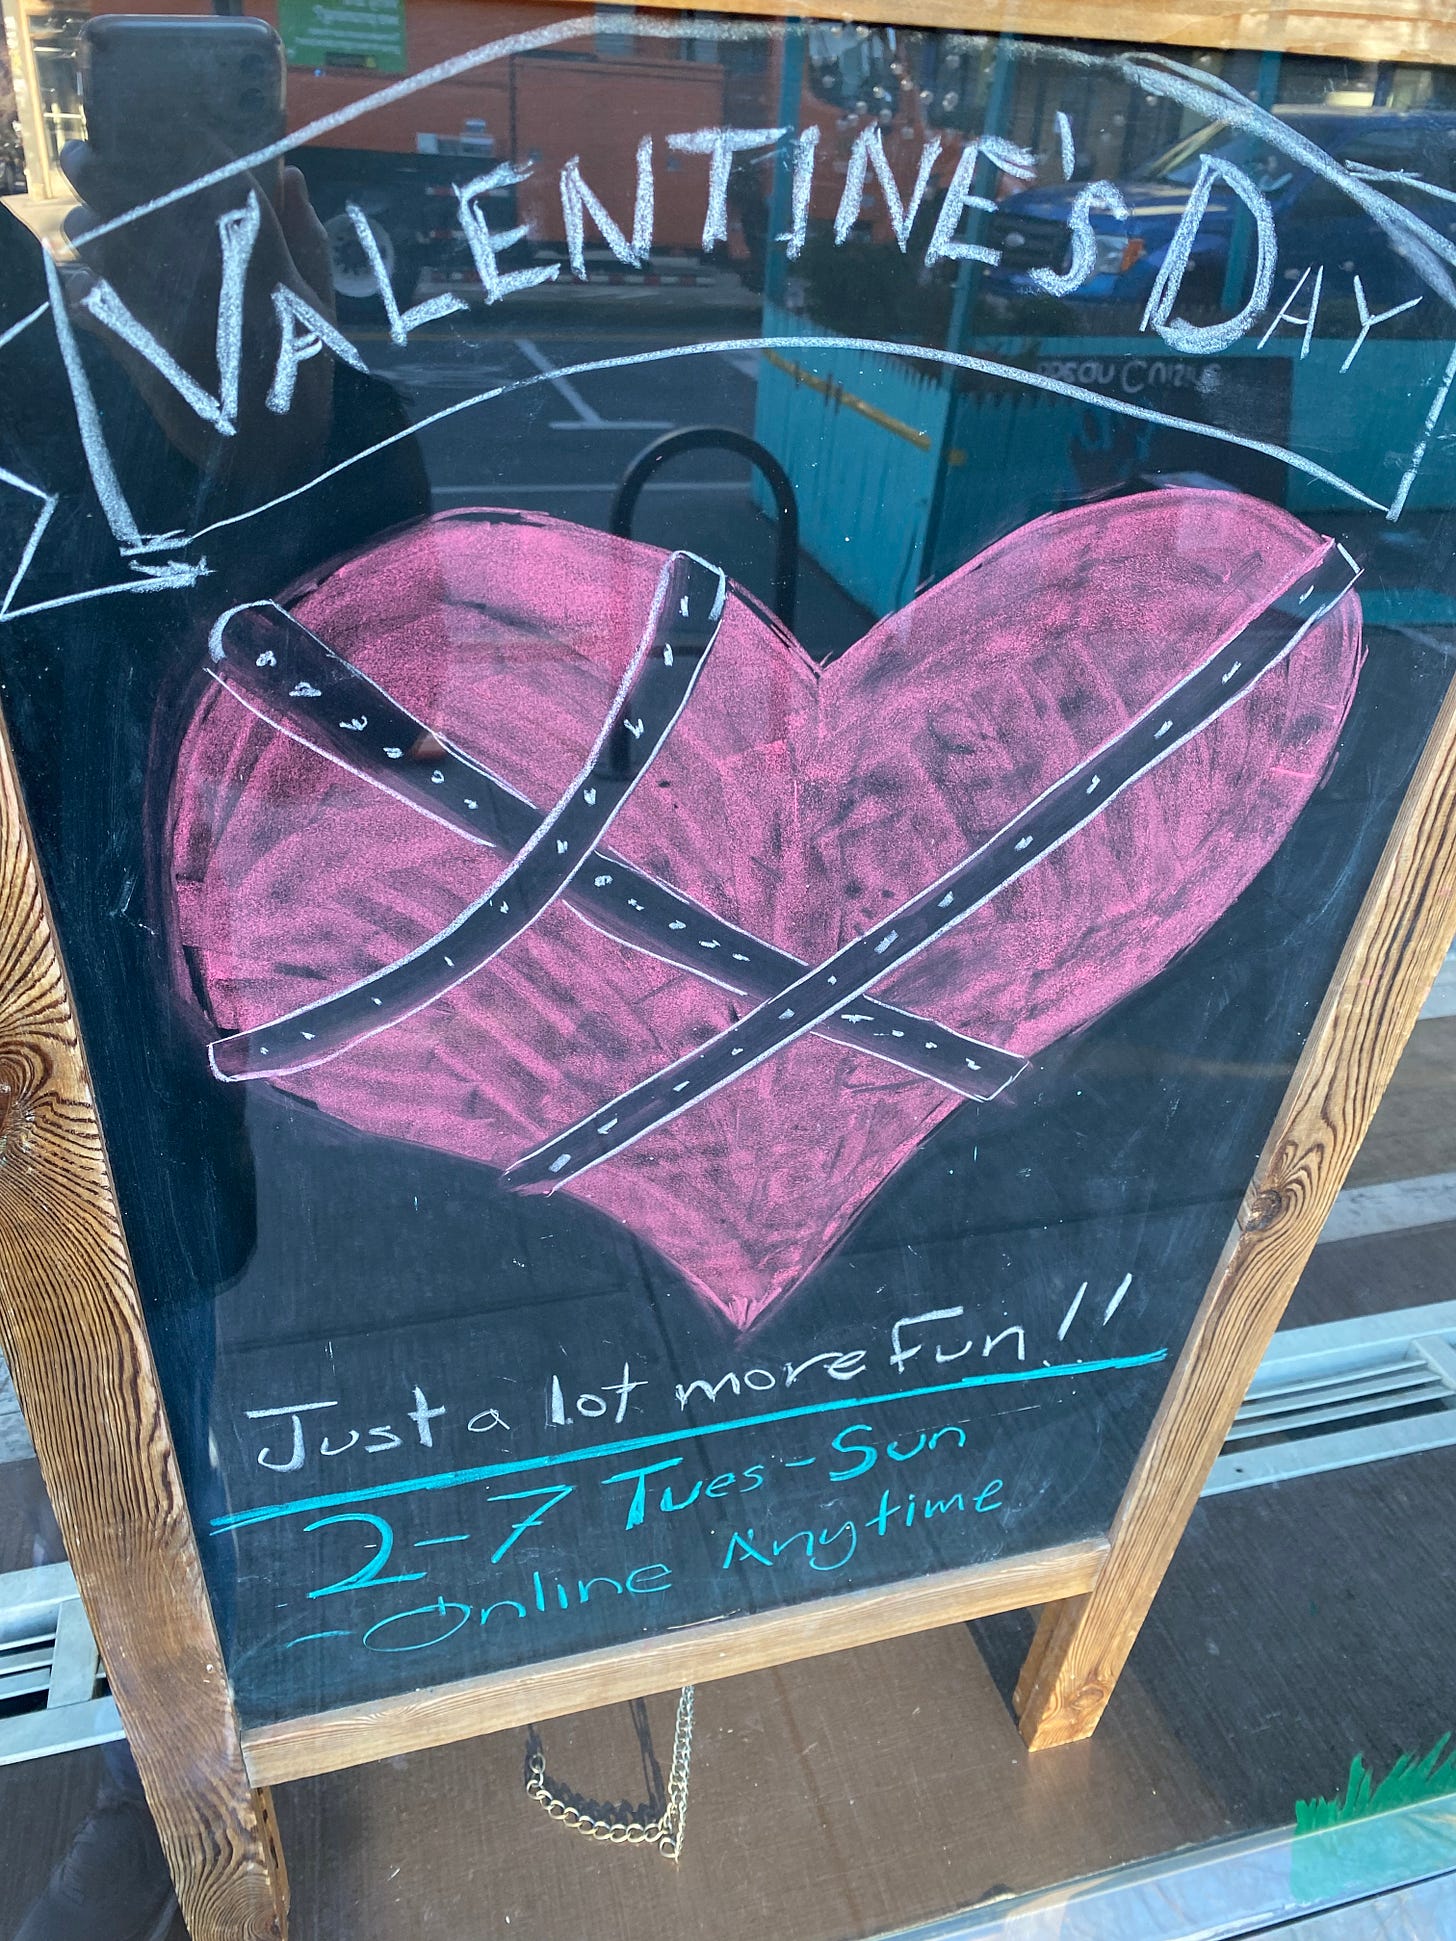 VALENTINE'S DAY
Just a lot more Fun!!
2-7 Tues-Sun
-Online Anytime